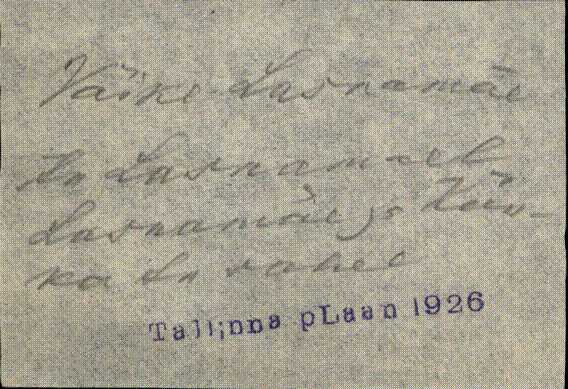 Väike-Lasnamäe
tn Lasnamäel
Lasnamäe ja Kivi-
ka tn vahel
Tallinna pLaan 1926